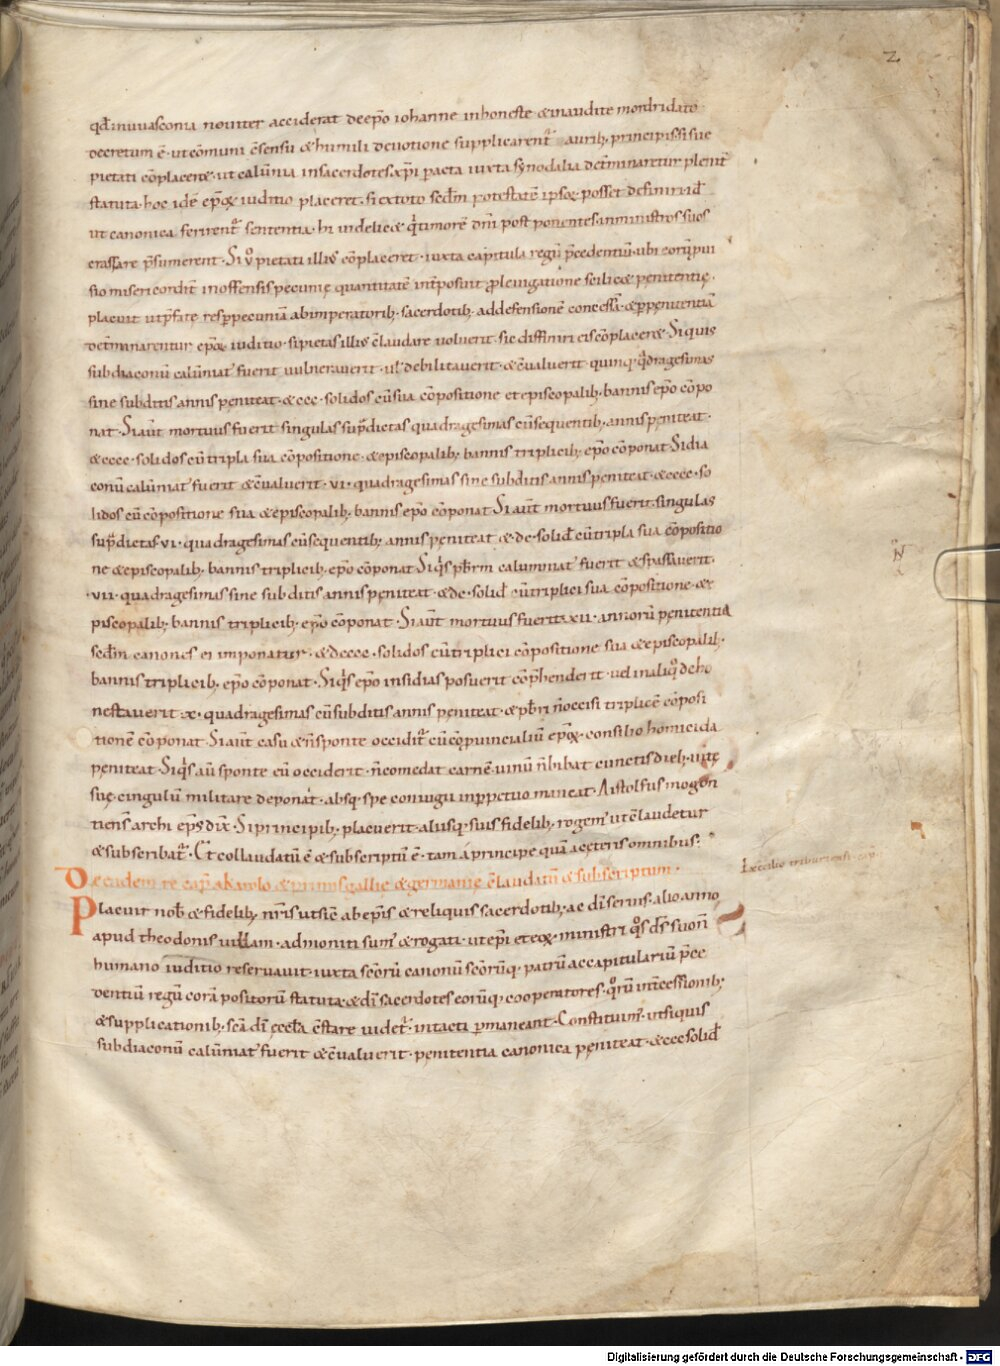 2
qđ in uuasconia noviter acciderat de ep̄o iohanne inhoneste & inaudite mordridato
decretum ē· ut cōmuni c̄sensu & humili devotione supplicarent᷑ aurib; principis· si suę
pietati cōplaceret· ut calūnia in sacerdotes xp̄i pacta iuxta synodalia det̄minaretur plenit᷑
statuta· hoc idē ep̄oꝝ iuditio placeret· si ex toto sedm̄ potestatē ipsoꝝ posset definiri id̄
ut canonica ferirent᷑ sententia· hi videlicet qͥ timorē dnī post ponentes· in ministros suos
crassare p̄sumerent· Si v̊ pietati illiꝰ cōplaceret· iuxta capitula regū p̄cedentiū· ubi eorū pia
sio misericordit᷑ in offensis pecunię quantitatē int̄posuit ꝓ levigatione scilic& penitentię·
placuit ut p̄fatę res ꝑ pecuniā ab imperatorib; sacerdotib; ad defensionē concessā· & ꝑ penitentiā
det̄minarentur ep̄oꝝ iuditio· si pietas illiꝰ c̄laudare voluerit· sic diffiniri ei cōplacer&· Siquis
subdiaconū calūniat᷑ fuerit vulneraverit· ut̄ debilitaverit· & c̄valuerit· quinq; qͣdragesimas
sine subditis annis peniteat· & ccc· solidos cū sua cōpositione et episcopalib; bannis ep̄o cōpo
nat· Si aūt mortuus fuerit singulas sup̄dictas quadragesimas cū sequentib; annis peniteat·
& cccc· solidos cū tripla sua cōpositione· & episcopalib; bannis triplicib; ep̄o cōponat· Si dia
conū calūniat᷑ fuerit & c̄valuerit· vi· quadragesimas sine subditis annis peniteat· & cccc· so
lidos cū cōpositione sua & episcopalib; bannis ep̄o cōponat· Si aūt mortuus fuerit· singulas
sup̄dictas· vi· quadragesimas cū sequentib; annis peniteat· & dc· solid̄ cū tripla sua cōpositio
ne & episcopalib; bannis triplicib; ep̄o cōponat· Siqͥs pb̄rm calumniat᷑ fuerit & spassaverit·
·vii· quadragesimas sine subditis annis peniteat· & dc· solid̄ cū triplici sua cōpositione· & e
piscopalib; bannis triplicib; ep̄o cōponat· Si aūt mortuus fuerit· xii· annorū penitentia
sedm̄ canones ei imponatur· & dcccc· solidos cū triplici cōpositione sua & episcopalib;
bannis triplicib; ep̄o cōponat· Siqͥs ep̄o insidias posuerit cōp̄henderit· vel in aliqͦ deho
nestaverit· x· quadragesimas cū subditis annis peniteat· & pb̄ri n̄ occisi triplicē cōposi
tionē cōponat· Si aūt casu & n̄ sponte occidit᷑ cū cōꝓvincialiū ep̄oꝝ· consilio homicida
peniteat· Siqͥs aū sponte eū occiderit· n̄ comedat carnē· vinū n̄ bibat cunctis dieb; vitę
suę· cingulū militare deponat· absq; spe coniugii in ꝑpetuo maneat· Aistolfus mogon
tiens̄ archiep̄s dix̄· Si principib; placuerit· aliisq; suis fidelib; rogemꝰ ut c̄laudetur
& subscribat᷑· Et collaudatū ē & subscriptū ē· tam a principe quā a cęteris omnibus;
De eadem re cap̄ a Karolo & primis gallię & germanię c̄laudatū & subscriptum·
Placuit nob̄ & fidelib; nr̄is ut sic ē ab ep̄is & reliquis sacerdotib; ac dī servis· alio anno
apud theodonis villam· admoniti sumꝰ & rogati· ut ep̄i et eoꝝ· ministri qͦs ds̄ suo n̄
humano iuditio reservavit· iuxta sc̄orū canonū sc̄orūq; patrū ac capitulariū p̄ce
dentiū regū corā positorū statuta· & dī sacerdotes eorūq; cooperatores· qͦrū int̄cessionib;
& supplicationib; sc̄a dī ęccl̄a c̄stare videt᷑· intacti ꝑmaneant· Constituimꝰ· ut siquis
subdiaconū calūniat᷑ fuerit & c̄valuerit· penitentia canonica peniteat· & ccc solid̄
Ex c̄cilio triburiensi cap̄
Digitalisierung gefördert durch die Deutsche Forschungsgemeinschaft - DFG